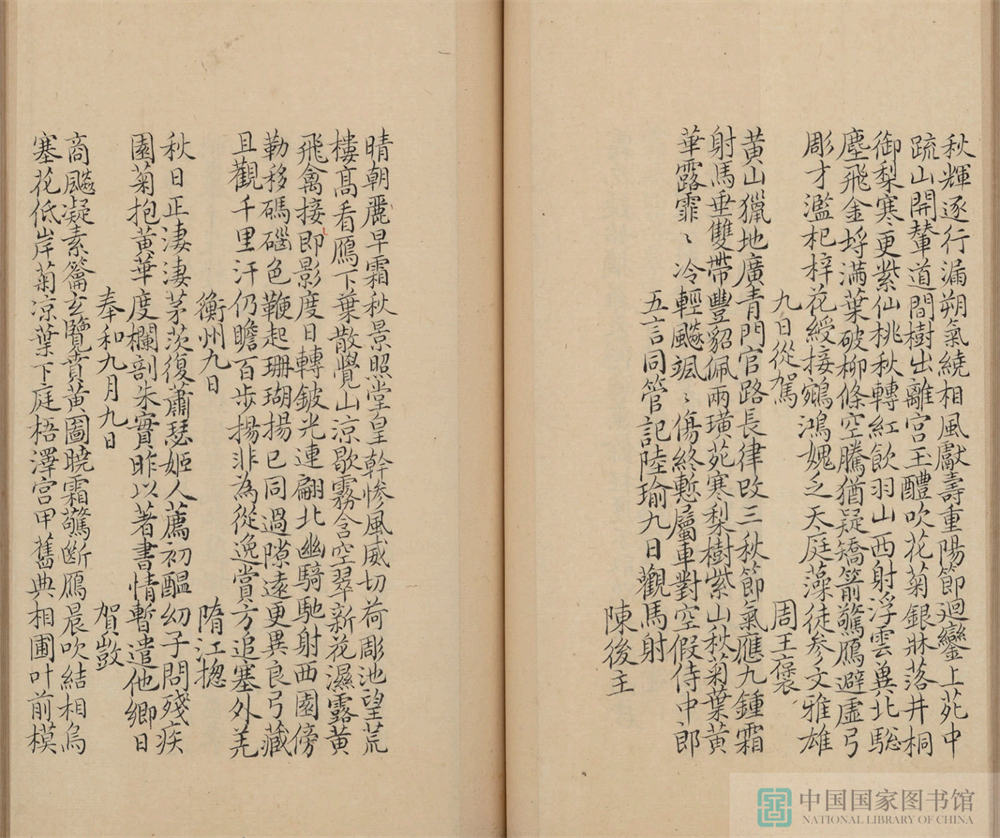 秋輝逐行漏朔氣繞相風獻壽重陽節迴鑾上苑中
疏山開輦道間樹出離宮玉醴吹花菊銀牀落井桐
御梨寒更紫仙桃秋轉紅飲羽山西射浮雲兾北驄
塵飛金埒滿葉破柳條空騰猶疑矯箭驚鴈避虛弓
彫才濫杞梓花綬接鵷鴻媿乏天庭藻徒參文雅雄
九日從駕 周王褒
黃山獵地廣青門官路長律改三秋節氣應九鍾霜
射馬垂雙帶豐貂佩兩璜苑寒梨樹紫山秋菊葉黃
華露霏〻冷輕飈颯〻傷終慙屬車對空假侍中郎
五言同管記陸瑜九日觀馬射
陳後主
晴朝麗早霜秋景照堂皇幹慘風威切荷彫池望荒
樓高看鴈下葉散覺山涼歇霧含空翠新花濕露黃
飛禽接即影度日轉鈹光連翩北幽騎馳射西園傍
勒移碼碯色鞭起珊瑚揚已同過隙遠更異良弓藏
且觀千里汗仍瞻百步揚非為從逸賞方追塞外羌
衡州九日 隋江摠
秋日正淒淒茅茨復蕭瑟姬人薦初醞幼子問殘疾
園菊抱黃華度欄剖朱實昨以著書情暫遣他鄉日
奉和九月九日 賀敳
商飈凝素籥玄覽賁黃圖曉霜驚斷鴈晨吹結相烏
塞花低岸菊涼葉下庭梧澤宮甲舊典相圃叶前模
中国国家图书馆
NATIONAL LIBRARY OF CHINA